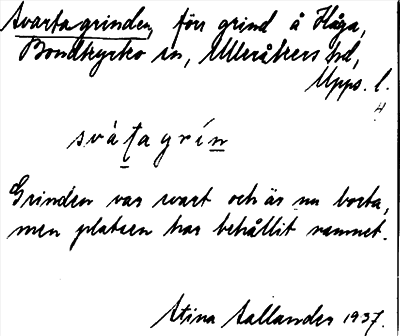 Svarta grinden, förr grind å Håga,
Bondkyrko sn, Ulleråkers hd,
Upps. l.
4
svà̱ṯagríṉ
Grinden var svart och är nu borta,
men platsen har behållit namnet.
Stina Sallander 1937.